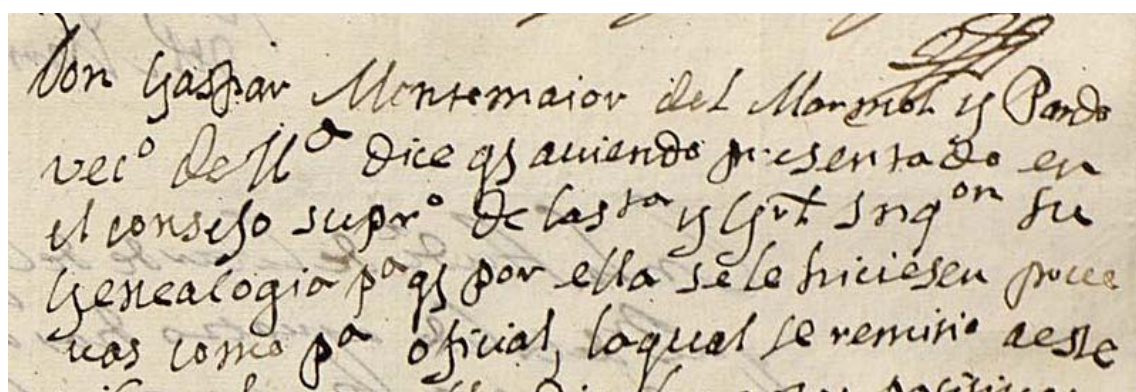 Don Gaspar Montemaior del Marmol y Pardo
vecº de Mª dice q auiendo presentado en
el consejo suprº de la sta y Grl Inqon su
Genealogia pª q por ella se le hiciesen prue
uas como pª oficial, la qual se remitio a este